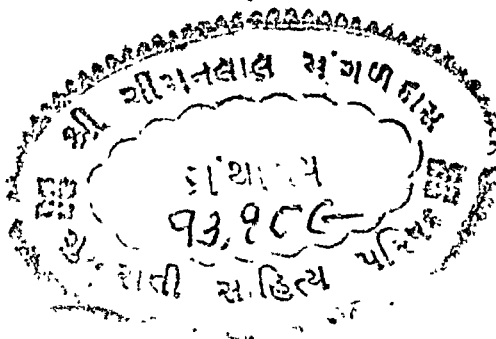 શ્રી ચીમનલાલ મંગળદાસ
ગ્રંથાલય
૧૩,૧૮૯
ગુજરાતી સાહિત્ય પરિષદ